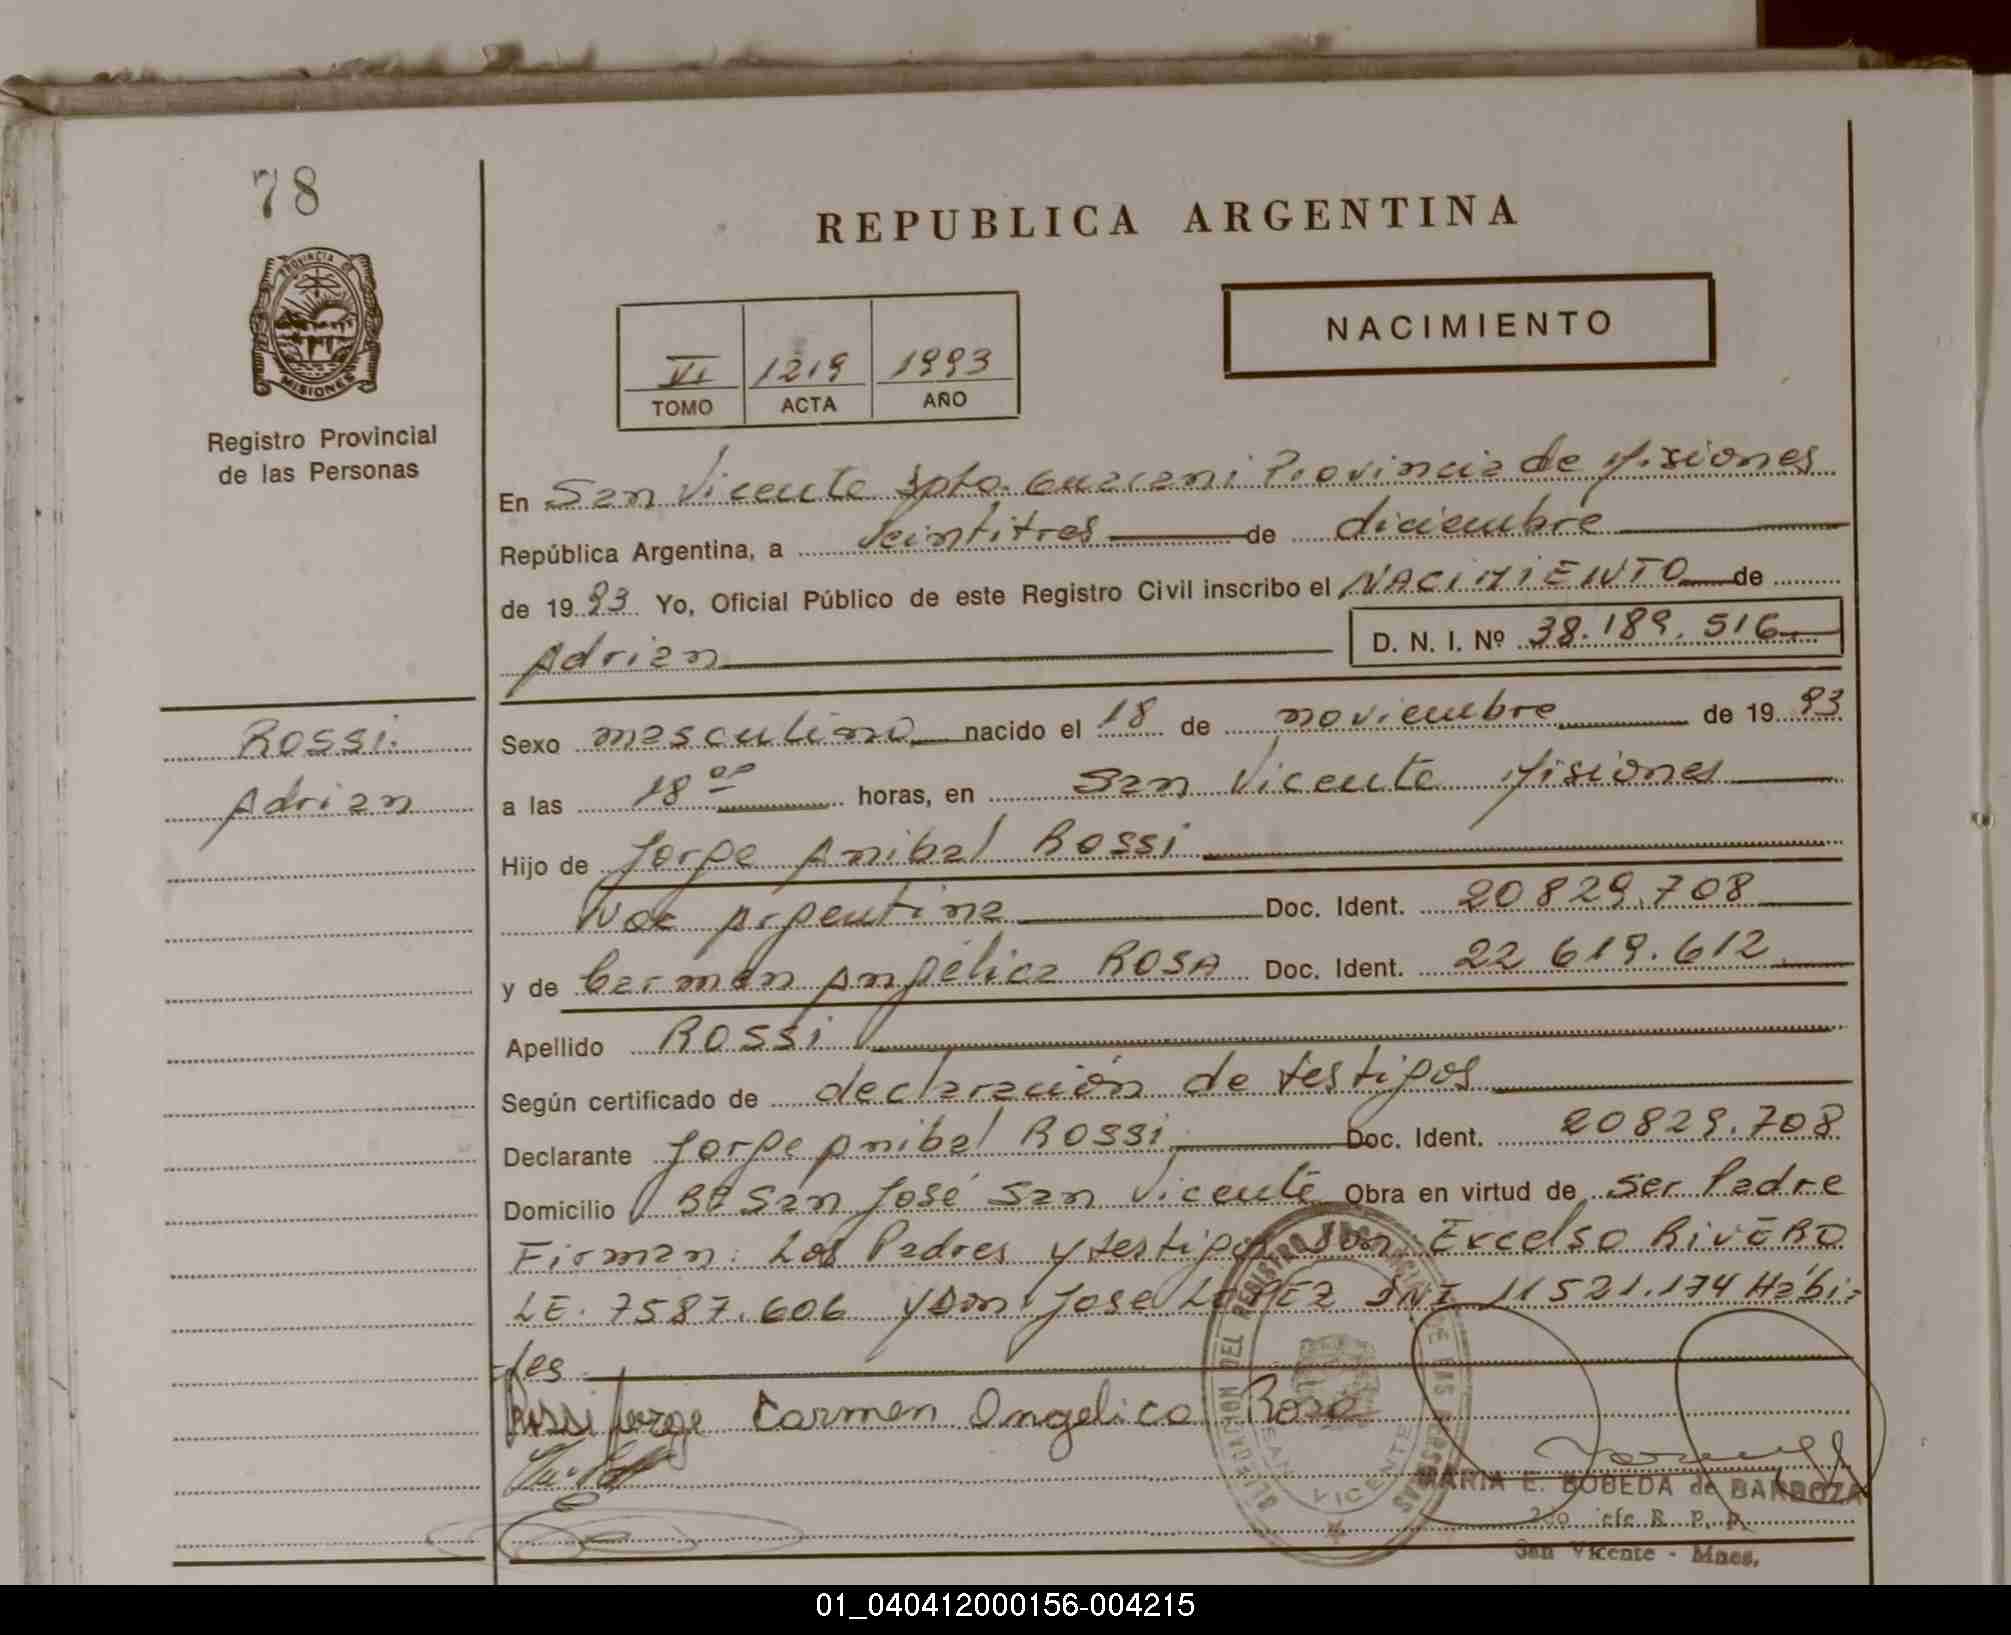 78
REPUBLICA ARGENTINA
PROVINCIA DE
MISIONES
NACIMIENTO
VI 1219 1993
TOMO ACTA AÑO
Registro Provincial
de las Personas
En San Vicente Dpto. Guarani Provincia de Misiones
República Argentina, a veintitres de diciembre
de 1993 Yo, Oficial Público de este Registro Civil inscribo el NACIMIENTO de
Adrian D. N. I. Nº 38.189.516
Rossi.
Adrian
Sexo masculino nacido el 18 de noviembre de 1993
a las 18 00 horas, en San Vicente Misiones
Hijo de Jorge Anibal Rossi
Nac Argentina Doc. Ident. 20829.708
y de Carmen Angélica ROSA Doc. Ident. 22 619.612
Apellido ROSSi
Según certificado de declaración de testigos
Declarante Jorge Anibal ROSSi Doc. Ident. 20829.708
Domicilio Bº San José San Vicente Obra en virtud de ser Padre
Firman: Los Padres y testigos Don Excelso RiVERO
LE. 7587.606 y Don Jose LOPEZ DNI 11521.174 Hábi=
=les
Rossi Jorge Carmen Angelica Rosa
DELEGACION DEL REGISTRO PROVINCIAL DE LAS PERSONAS
SAN VICENTE
MARIA E. BOBEDA de BARBOZA
2do Jefe R. P. P.
San Vicente - Mnes.
01_040412000156-004215